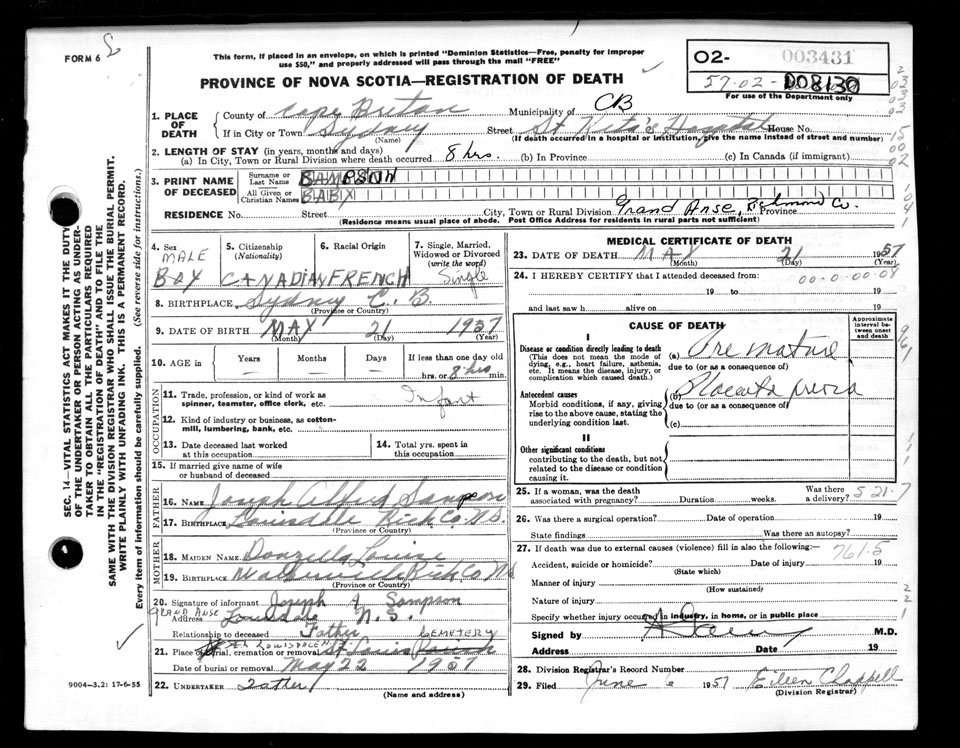 FORM 6
This form, if placed in an envelope, on which is printed "Dominion Statistics—Free, penalty for improper
use $50," and properly addressed will pass through the mail "FREE"
PROVINCE OF NOVA SCOTIA—REGISTRATION OF DEATH
02- 003431
57-02- D08130
For use of the Department only
1. PLACE OF DEATH
County of Cape Breton Municipality of CB
If in City or Town Sydney Street St Rita's Hospital House No.
(Name) (If death occurred in a hospital or institution, give the name instead of street and number)
2. LENGTH OF STAY (in years, months and days)
(a) In City, Town or Rural Division where death occurred 8 hrs. (b) In Province (c) In Canada (if immigrant)
3. PRINT NAME OF DECEASED
Surname or Last Name SAMPSON
All Given or Christian Names BABY
RESIDENCE No. Street City, Town or Rural Division Grand Anse, Richmond Co. Province
(Residence means usual place of abode. Post Office Address for residents in rural parts not sufficient)
4. Sex MALE BOY
5. Citizenship (Nationality) CANADIAN
6. Racial Origin FRENCH
7. Single, Married, Widowed or Divorced (write the word) Single
8. BIRTHPLACE Sydney C. B.
(Province or Country)
9. DATE OF BIRTH MAY 21 1957
(Month) (Day) (Year)
10. AGE in Years Months Days If less than one day old
hrs. or 8 hrs min.
OCCUPATION
11. Trade, profession, or kind of work as spinner, teamster, office clerk, etc. Infant
12. Kind of industry or business, as cotton-mill, lumbering, bank, etc.
13. Date deceased last worked at this occupation
14. Total yrs. spent in this occupation
15. If married give name of wife or husband of deceased
FATHER
16. NAME Joseph Alfred Sampson
17. BIRTHPLACE Louisdale Rich Co. N.S.
(Province or Country)
MOTHER
18. MAIDEN NAME Donzella Louise
19. BIRTHPLACE Rich Co N.S
(Province or Country)
20. Signature of informant Joseph A Sampson
GRAND ANSE
Address Louisdale N. S.
Relationship to deceased Father
CEMETERY
21. Place of burial, cremation or removal LOUISDALE St Louis Parish
Date of burial or removal May 22 1957
22. UNDERTAKER Father
(Name and address)
MEDICAL CERTIFICATE OF DEATH
23. DATE OF DEATH MAY 21 1957
(Month) (Day) (Year)
24. I HEREBY CERTIFY that I attended deceased from: 00-0-00-08
19 to 19
and last saw h alive on 19
CAUSE OF DEATH
Approximate interval between onset and death
Disease or condition directly leading to death
(This does not mean the mode of dying, e.g., heart failure, asthenia, etc. It means the disease, injury, or complication which caused death.)
(a) Premature
due to (or as a consequence of)
Antecedent causes
Morbid conditions, if any, giving rise to the above cause, stating the underlying condition last.
(b) Placenta previa
due to (or as a consequence of)
(c)
II
Other significant conditions
contributing to the death, but not related to the disease or condition causing it.
25. If a woman, was the death associated with pregnancy? Duration weeks. Was there a delivery? 5-21-7
26. Was there a surgical operation? Date of operation 19
State findings Was there an autopsy?
27. If death was due to external causes (violence) fill in also the following:— 761.5
Accident, suicide or homicide? Date of injury 19
(State which)
Manner of injury
(How sustained)
Nature of injury
Specify whether injury occurred in industry, in home, or in public place
Signed by M.D.
Address Date 19
28. Division Registrar's Record Number
29. Filed June 6 1957 Eileen Chappell
(Division Registrar)
SEC. 14—VITAL STATISTICS ACT MAKES IT THE DUTY
OF THE UNDERTAKER OR PERSON ACTING AS UNDER-
TAKER TO OBTAIN ALL THE PARTICULARS REQUIRED
IN THE "REGISTRATION OF DEATH" AND TO FILE THE
SAME WITH THE DIVISION REGISTRAR WHO SHALL ISSUE THE BURIAL PERMIT.
WRITE PLAINLY WITH UNFADING INK. THIS IS A PERMANENT RECORD.
Every item of information should be carefully supplied. (See reverse side for instructions.)
9004-3.2: 17-6-55